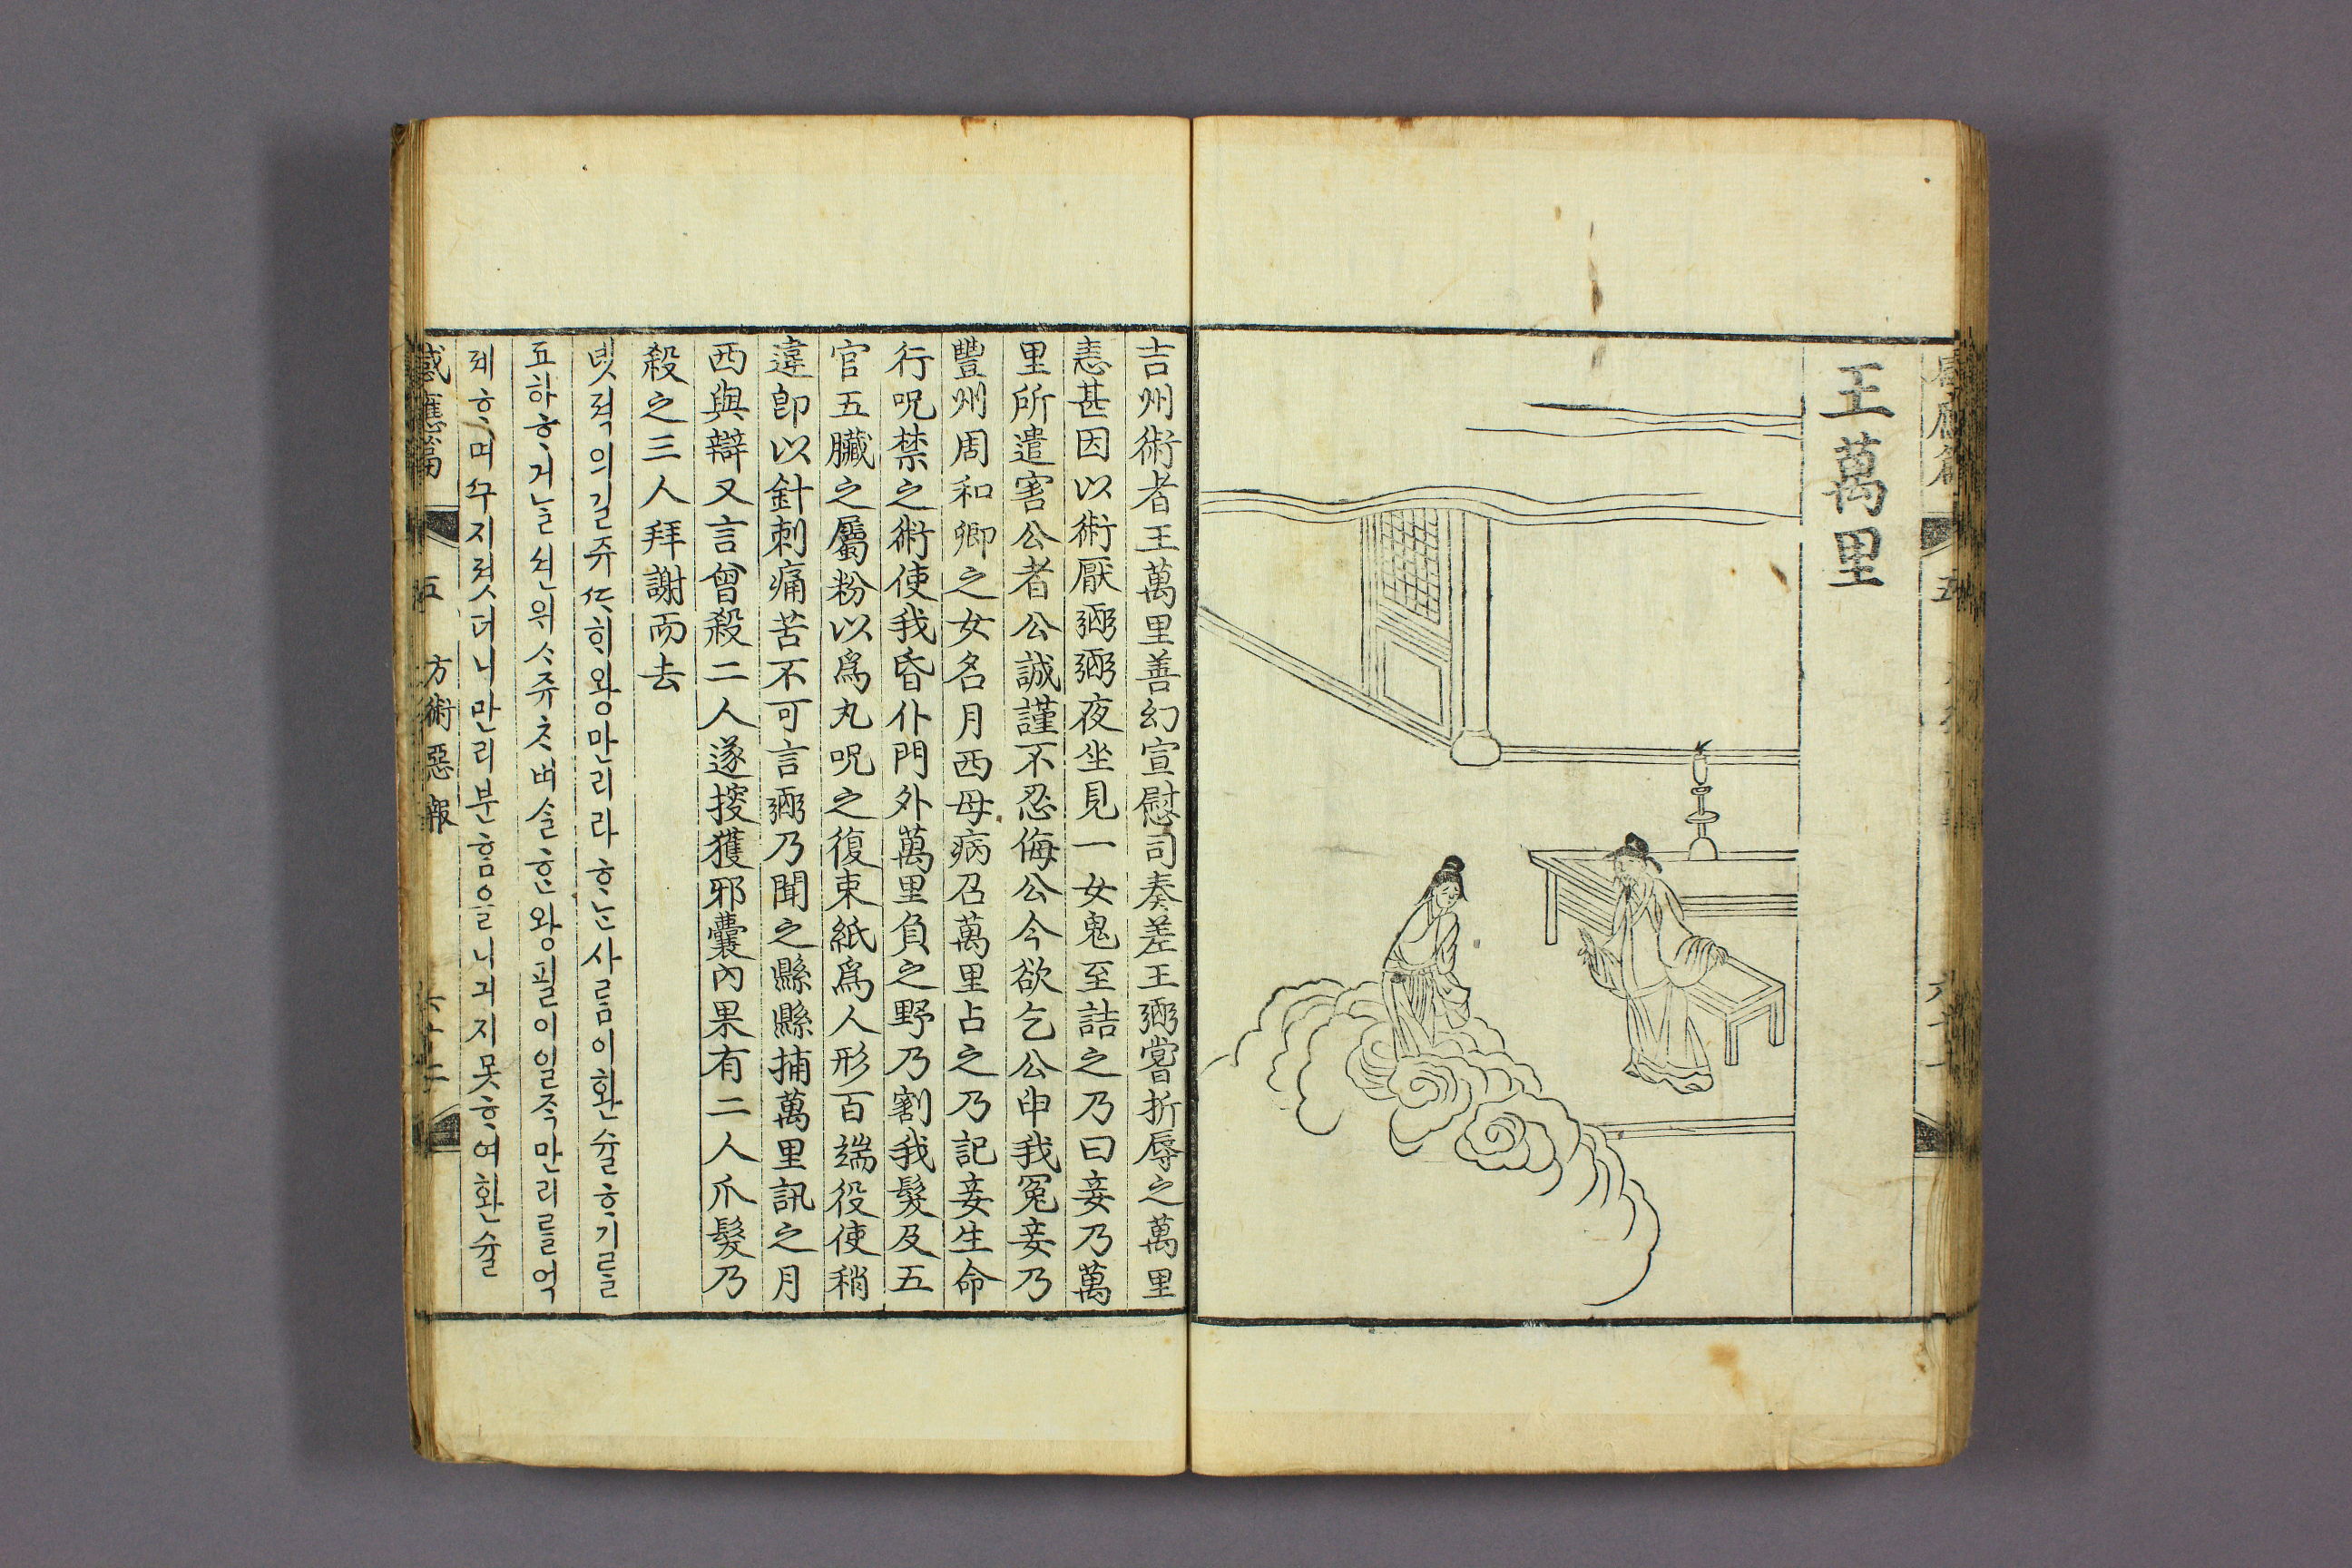 王萬里
吉州術者王萬里善幻宣慰司奏差王弼嘗折辱之萬里
恚甚因以術厭弼弼夜坐見一女鬼至詰之乃曰妾乃萬
里所遣害公者公誠謹不忍侮公今欲乞公申我冤妾乃
豐州周和卿之女名月西母病召萬里占之乃記妾生命
行呪禁之術使我昏仆門外萬里負之野乃割我髮及五
官五臟之屬粉以爲丸呪之復束紙爲人形百端役使稍
違卽以針刺痛苦不可言弼乃聞之縣縣捕萬里訊之月
西與辯又言曾殺二人遂搜獲邪囊內果有二人爪髮乃
殺之三人拜謝而去
녯젹의길쥬ᄯᅡᄒᆡ왕만리라ᄒᆞᄂᆞᆫ사ᄅᆞᆷ이환슐ᄒᆞ기ᄅᆞᆯ
됴하ᄒᆞ거ᄂᆞᆯ션위ᄉᆞ쥬ᄎᆞ벼ᄉᆞᆯᄒᆞᆫ왕필이일ᄌᆞᆨ만리ᄅᆞᆯ억
졔ᄒᆞ며ᄭᅮ지젓더니만리분ᄒᆞᆷ을니긔지못ᄒᆞ여환슐
感應篇 五 方術惡報 六十二